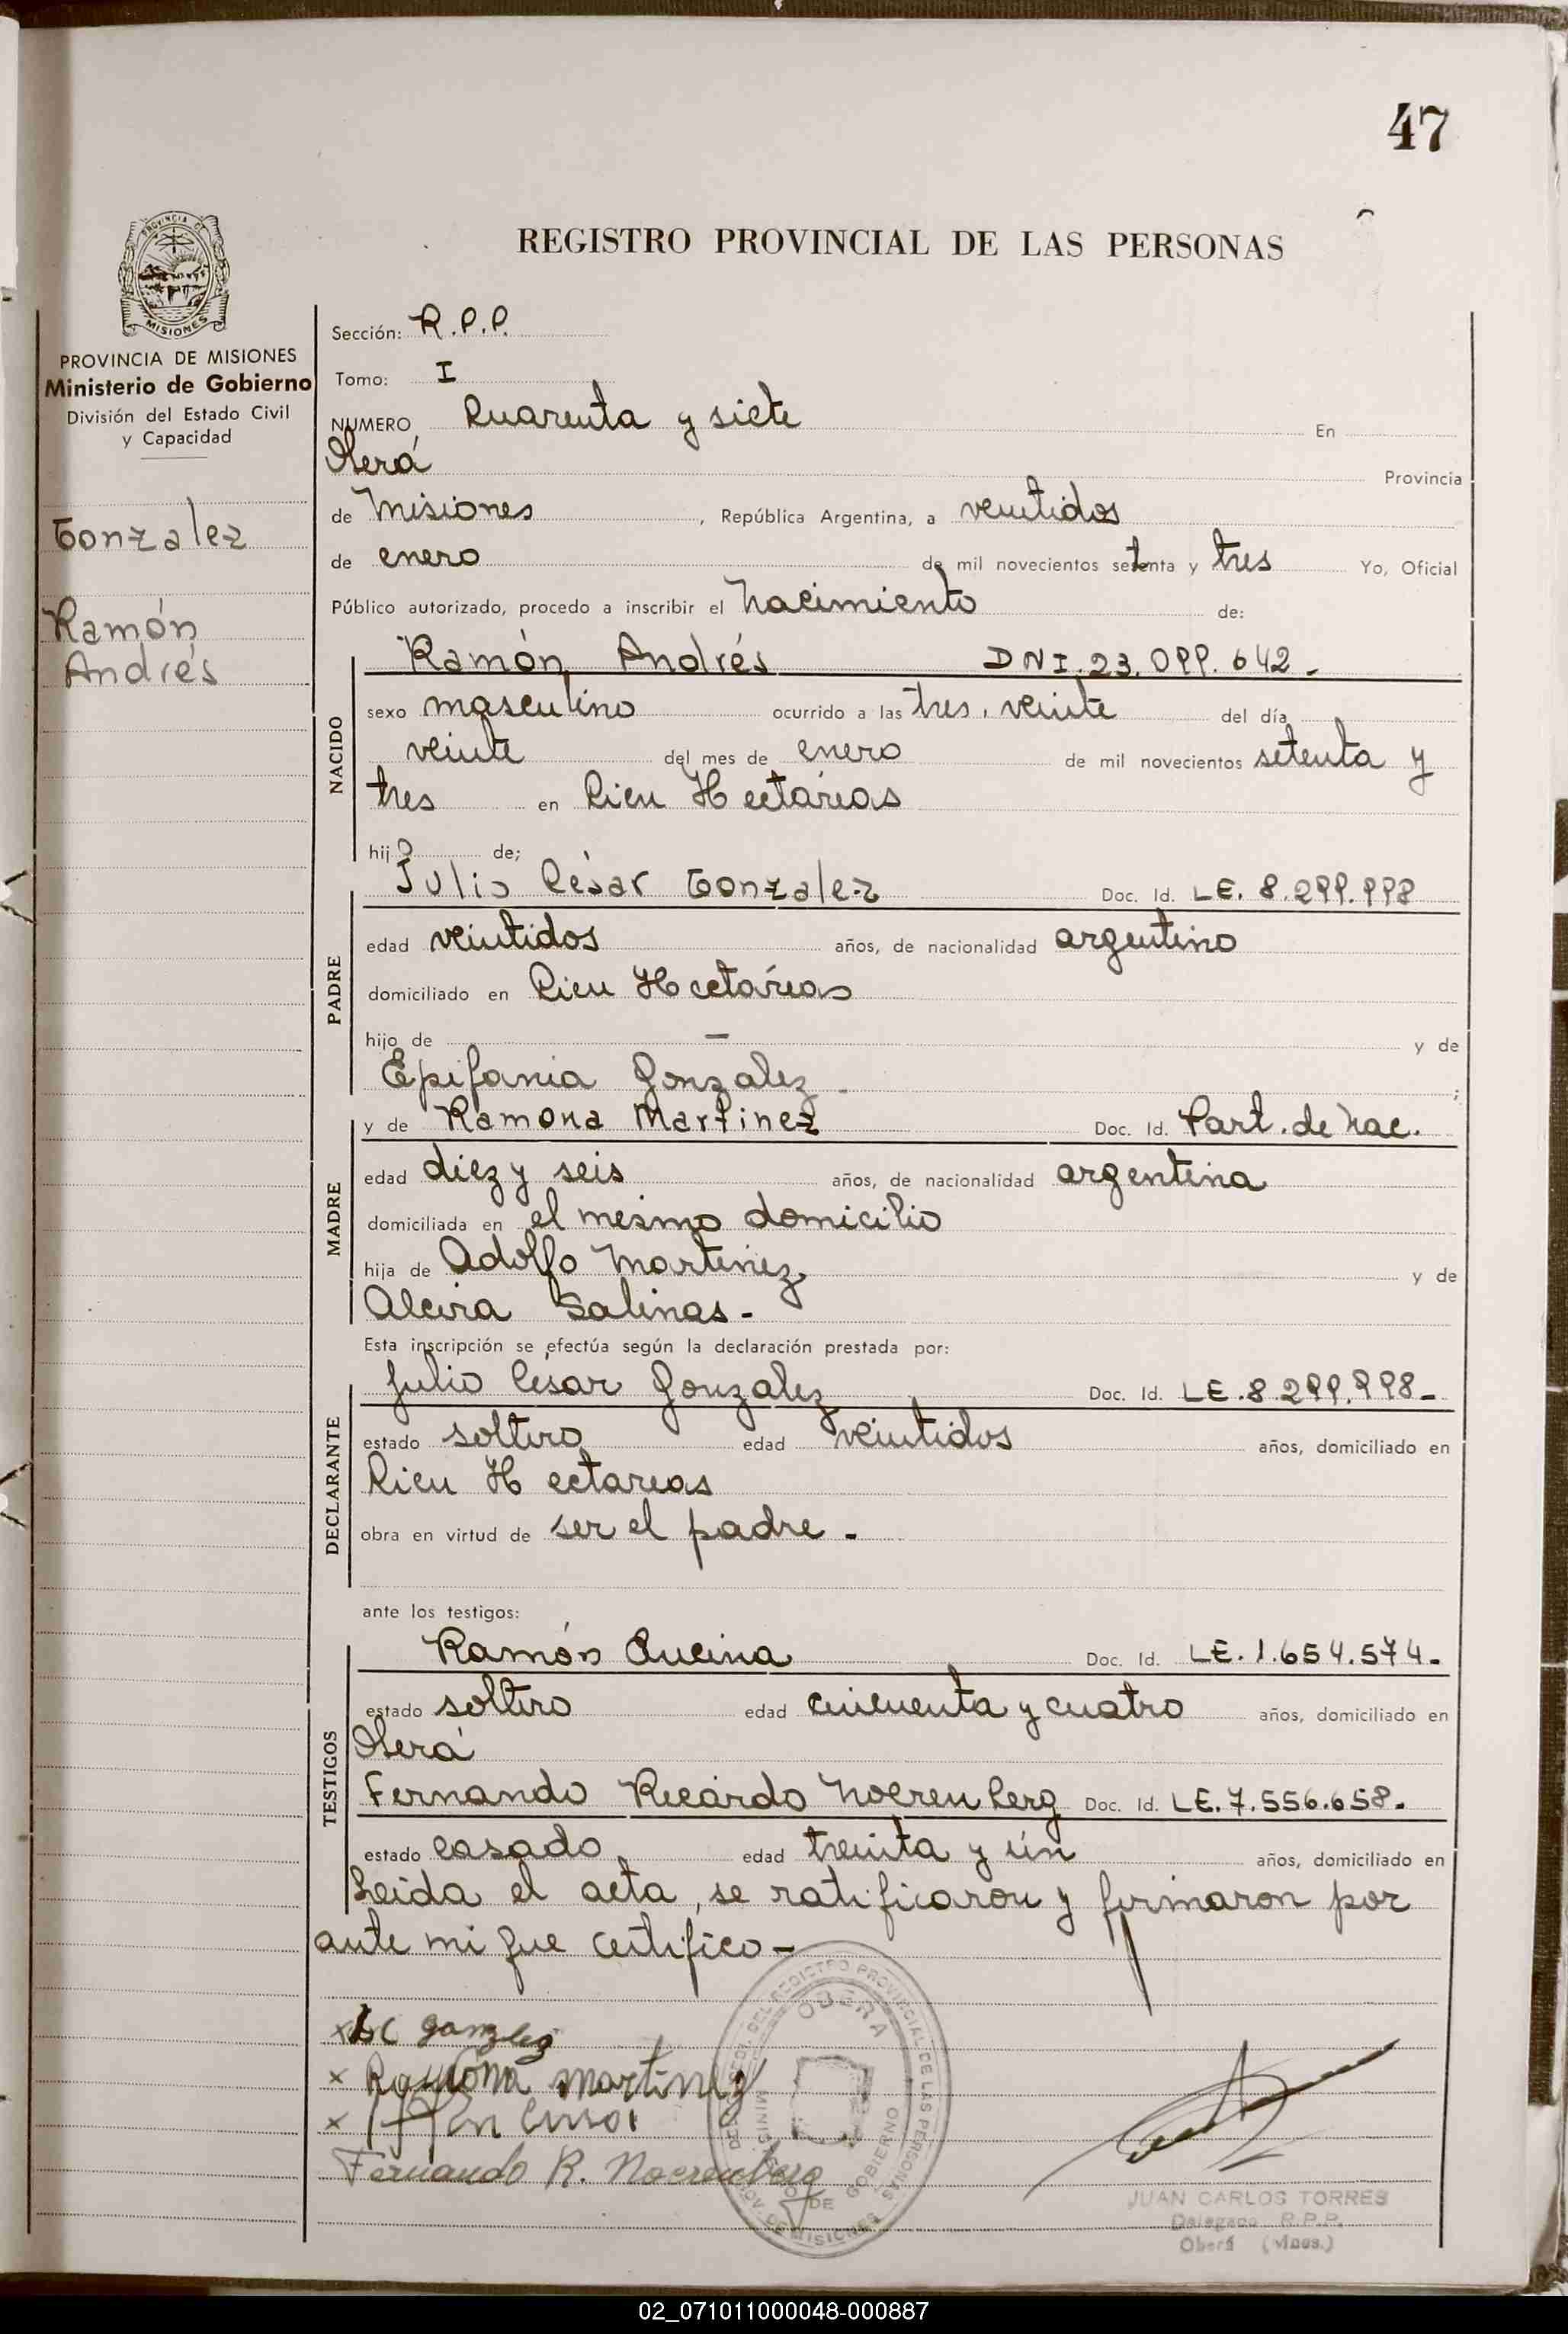 47
REGISTRO PROVINCIAL DE LAS PERSONAS
PROVINCIA DE MISIONES
Ministerio de Gobierno
División del Estado Civil
y Capacidad
Gonzalez
Ramón
Andrés
Sección: R.P.P.
Tomo: I
NUMERO Cuarenta y siete En
Oberá Provincia
de Misiones, República Argentina, a veintidos
de enero de mil novecientos setenta y tres Yo, Oficial
Público autorizado, procedo a inscribir el Nacimiento de:
NACIDO
Ramón Andrés DNI. 23.099.642-
sexo masculino ocurrido a las tres, veinte del día
veinte del mes de enero de mil novecientos setenta y
tres en Cien Hectáreas
hijo de;
PADRE
Julio César Gonzalez Doc. Id. LE. 8.299.998
edad veintidos años, de nacionalidad argentino
domiciliado en Cien Hectáreas
hijo de — y de
Epifania Gonzalez - ;
MADRE
y de Ramona Martinez Doc. Id. Part. de Nac.
edad diez y seis años, de nacionalidad argentina
domiciliada en el mismo domicilio
hija de Adolfo Martinez y de
Alcira Salinas-
Esta inscripción se efectúa según la declaración prestada por:
DECLARANTE
Julio César Gonzalez Doc. Id. LE. 8.299.998-
estado soltero edad veintidos años, domiciliado en
Cien Hectareas
obra en virtud de ser el padre -
ante los testigos:
TESTIGOS
Ramón Doc. Id. LE. 1.654.574-
estado soltero edad cincuenta y cuatro años, domiciliado en
Oberá
Fernando Ricardo Noerenberg Doc. Id. LE. 7.556.658.
estado casado edad treinta y un años, domiciliado en
Leida el acta, se ratificaron y firmaron por
ante mi que certifico-
x gonzlez
x Ramona martinez
x
Fernando R. Noerenberg
OBERA
MINISTERIO DE GOBIERNO
DEL REGISTRO PROVINCIAL DE LAS PERSONAS
PROV. DE MISIONES
JUAN CARLOS TORRES
Delegado R.P.P.
Oberá (Mnes.)
02_071011000048-000887